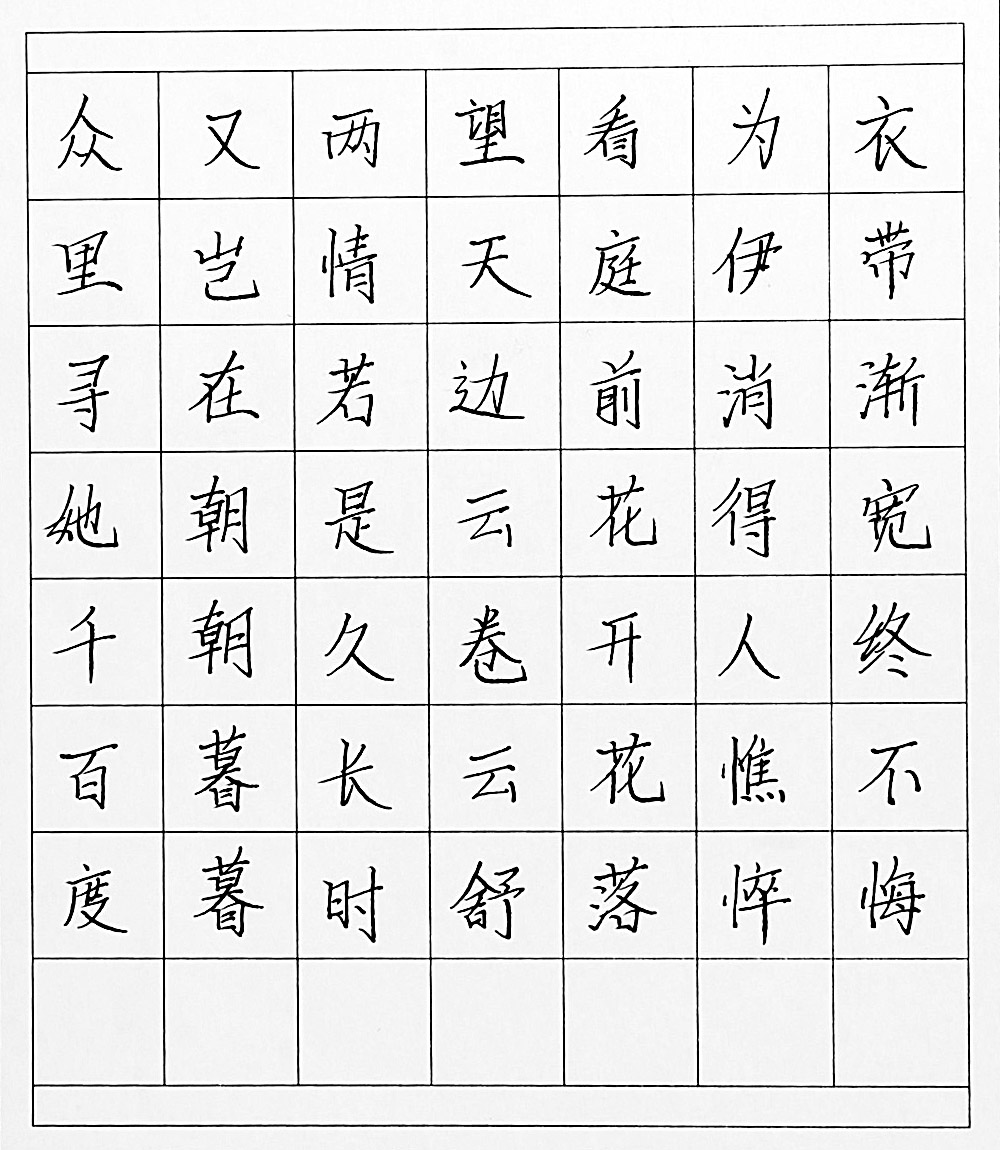 衣带渐宽终不悔
为伊消得人憔悴
看庭前花开花落
望天边云卷云舒
两情若是久长时
又岂在朝朝暮暮
众里寻她千百度